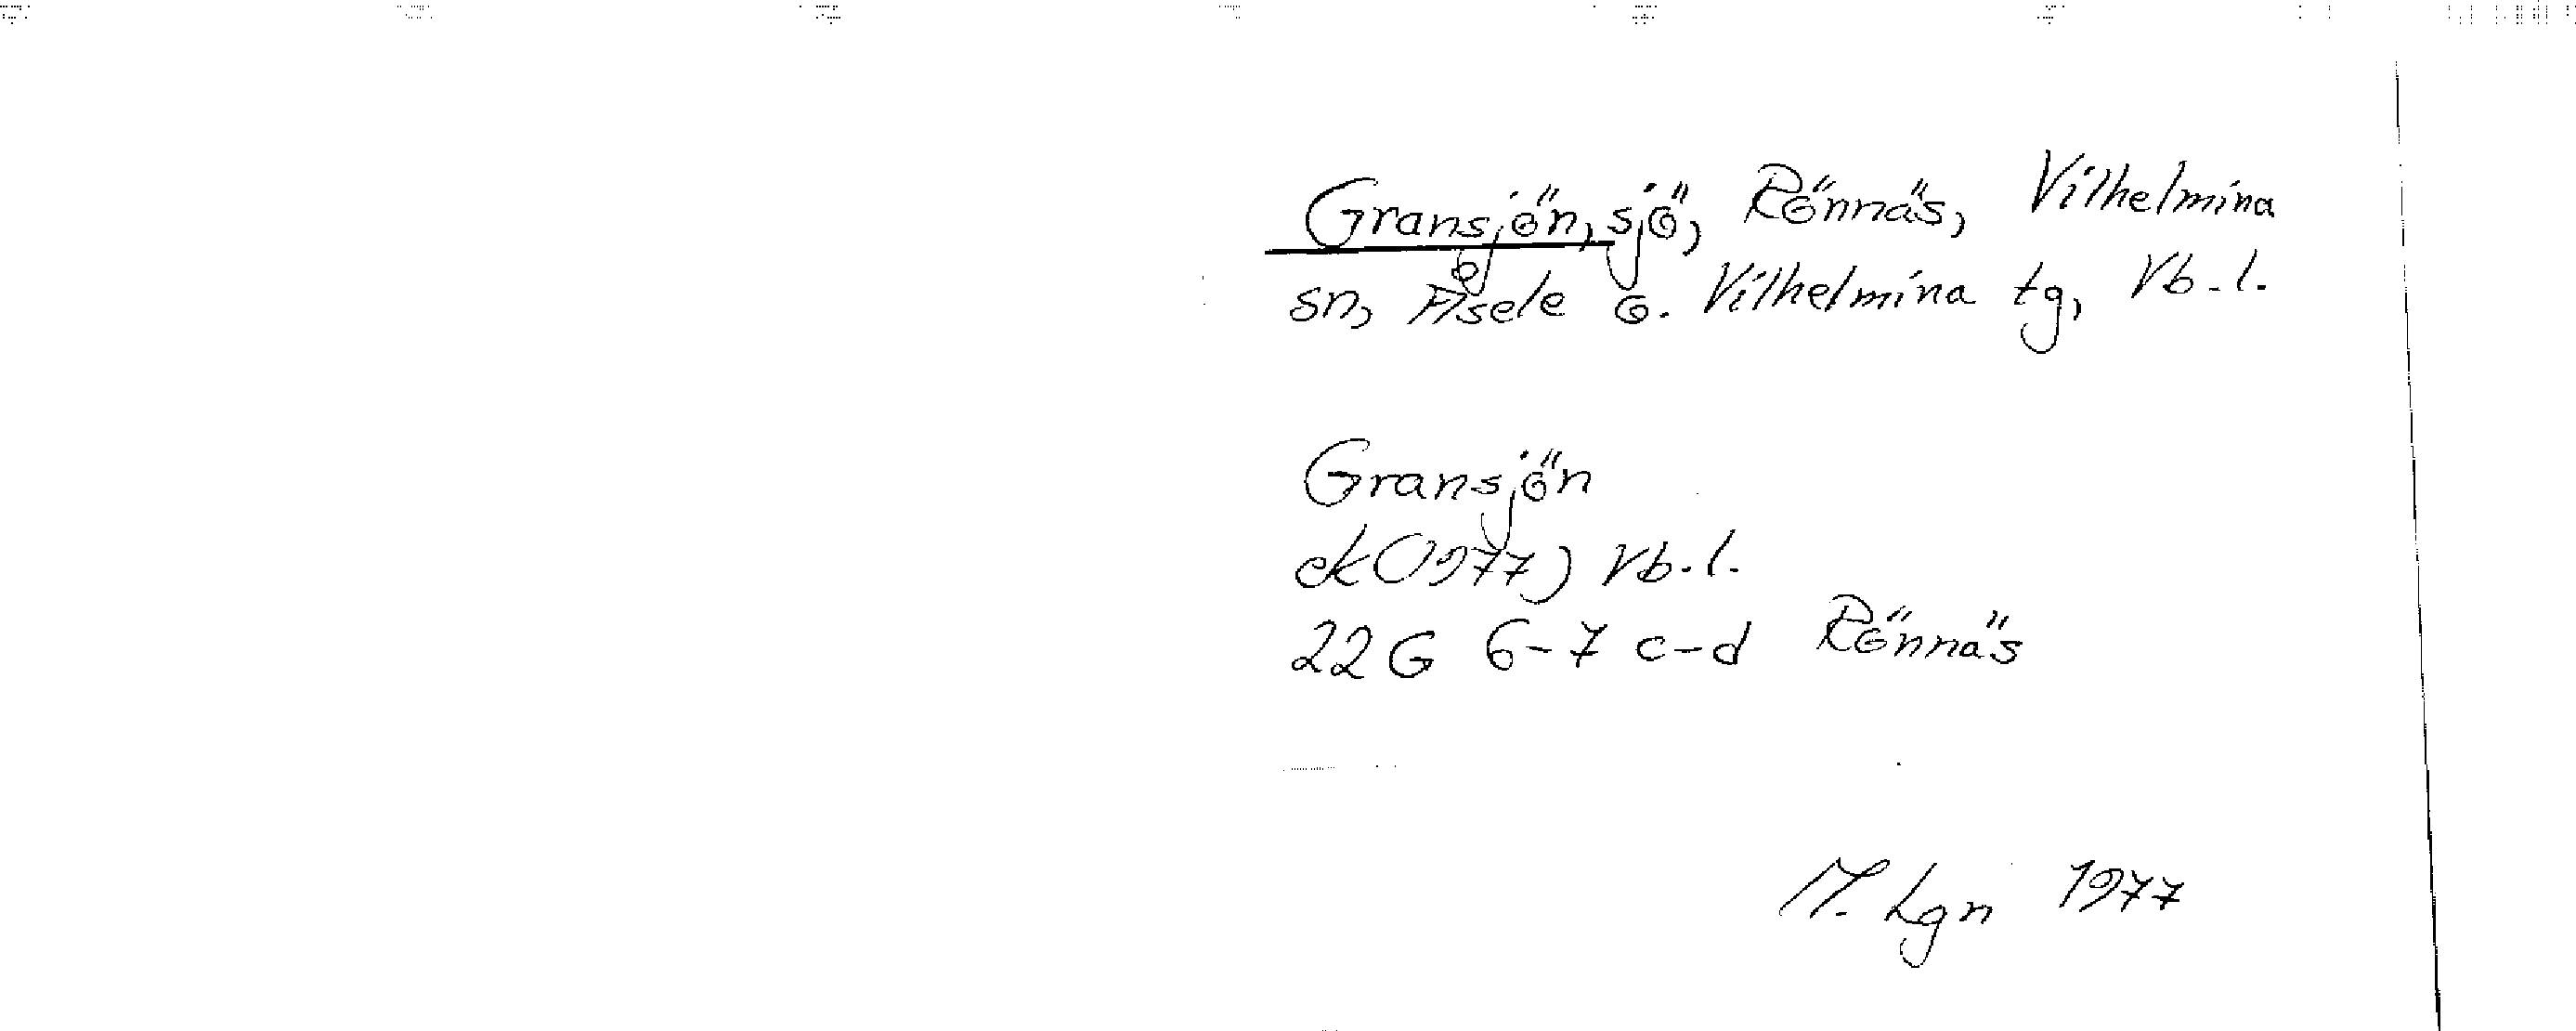 Gransjön, sjö, Rönnäs, Vilhelmina
sn, Åsele o. Vilhelmina tg, Vb.l.
Gransjön
ek (1977) Vb.l.
22 G 6-7 c-d Rönnäs
M. Lgn 1977